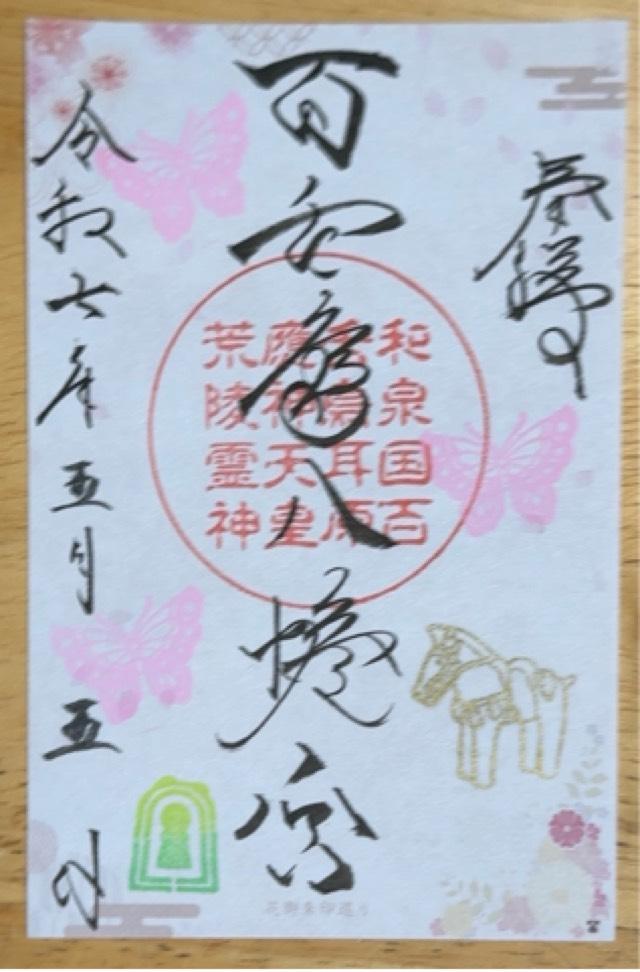 奉拝
百舌鳥八幡宮
和泉国百
舌鳥耳原
應神天皇
荒陵霊神
令和七年五月五日
花御朱印巡り